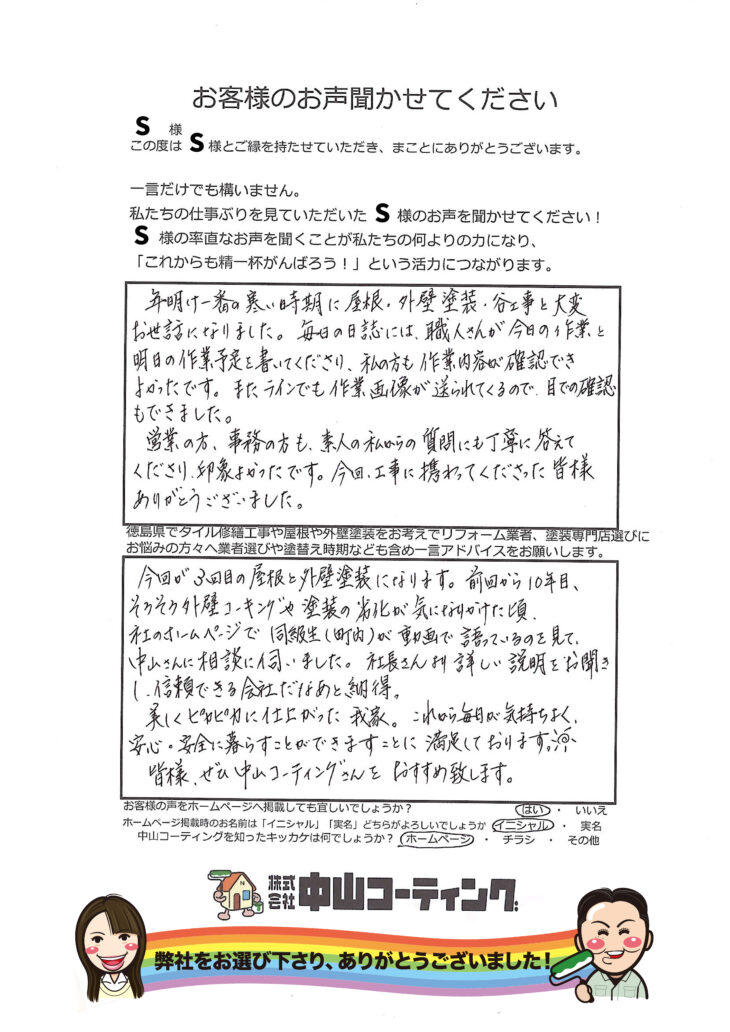 お客様のお声聞かせてください
S 様
この度は S 様とご縁を持たせていただき、まことにありがとうございます。
一言だけでも構いません。
私たちの仕事ぶりを見ていただいた S 様のお声を聞かせてください！
S 様の率直なお声を聞くことが私たちの何よりの力になり、
「これからも精一杯がんばろう！」という活力につながります。
年明け一番の寒い時期に屋根・外壁塗装・谷工事と大変
お世話になりました。毎日の日誌には、職人さんが今日の作業と
明日の作業予定を書いてくださり、私の方も作業内容が確認でき
よかったです。またラインでも作業画像が送られてくるので、目での確認
もできました。
営業の方、事務の方も、素人の私からの質問にも丁寧に答えて
くださり、印象よかったです。今回、工事に携わってくださった皆様
ありがとうございました。
徳島県でタイル修繕工事や屋根や外壁塗装をお考えでリフォーム業者、塗装専門店選びに
お悩みの方々へ業者選びや塗替え時期なども含め一言アドバイスをお願いします。
今回が3回目の屋根と外壁塗装になります。前回から10年目、
そろそろ外壁コーキングや塗装の劣化が気になりかけた頃、
社のホームページで同級生(町内)が動画で語っているのを見て、
中山さんに相談に伺いました。社長さんより詳しい説明をお聞き
し、信頼できる会社だなあと納得。
美しくピカピカに仕上がった我家。これから毎日が気持ちよく、
安心・安全に暮らすことができますことに満足しております。
皆様、ぜひ中山コーティングさんをおすすめ致します。
お客様の声をホームページへ掲載しても宜しいでしょうか？ はい ・ いいえ
ホームページ掲載時のお名前は「イニシャル」「実名」どちらがよろしいでしょうか イニシャル ・ 実名
中山コーティングを知ったキッカケは何でしょうか？ ホームページ ・ チラシ ・ その他
株式会社 中山コーティング
弊社をお選び下さり、ありがとうございました！